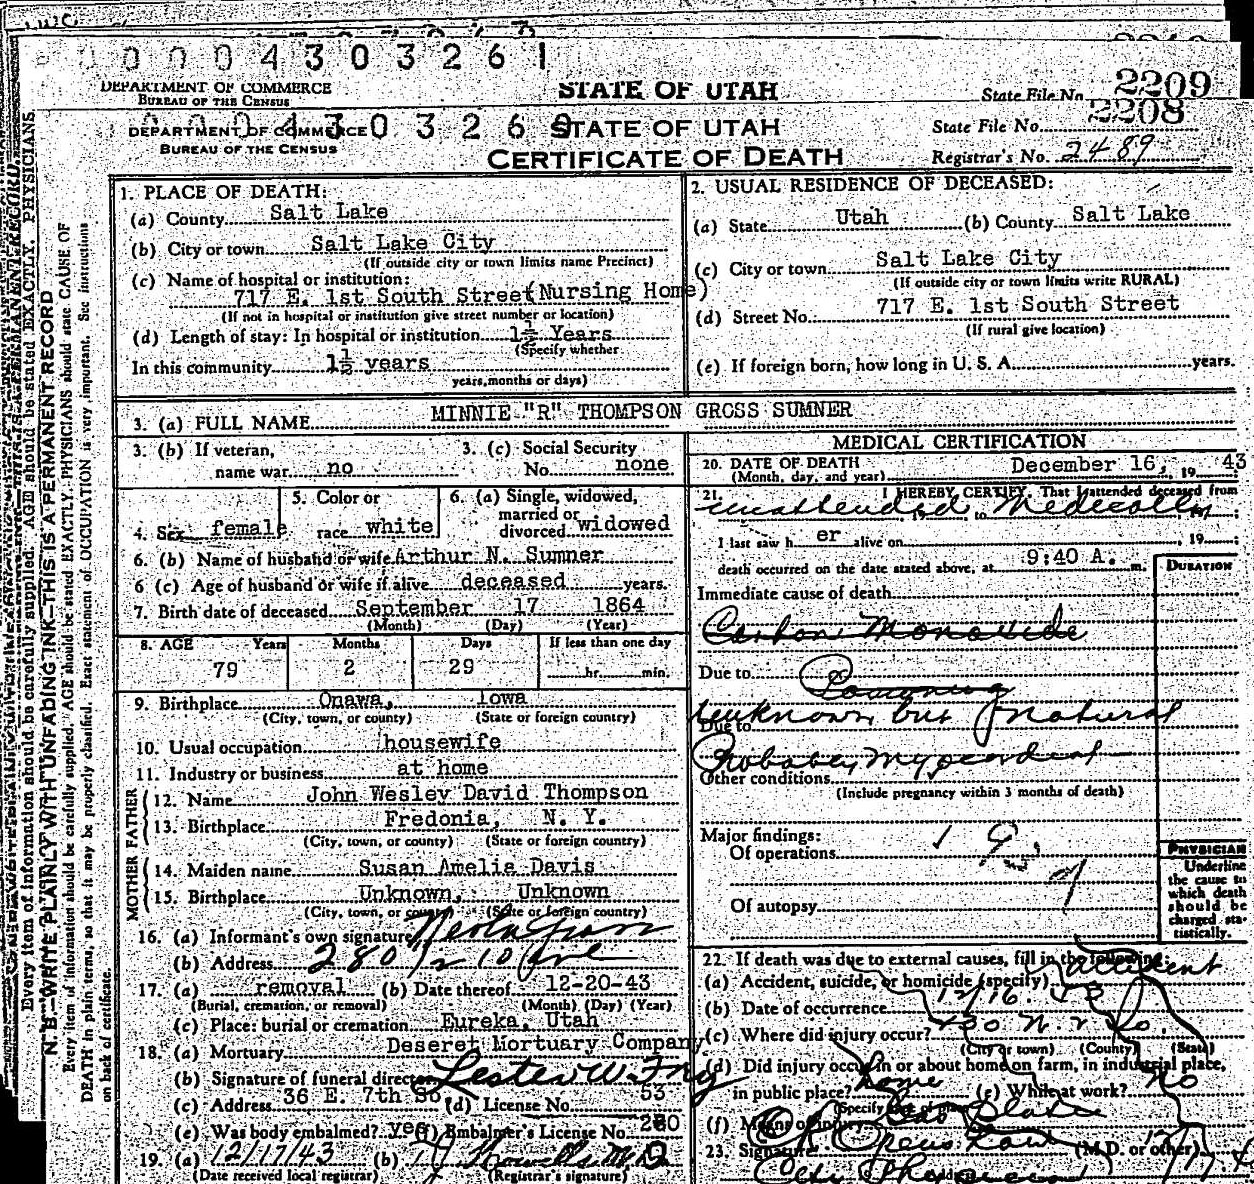 0 0 0 4 3 0 3 2 6 1
DEPARTMENT OF COMMERCE
BUREAU OF THE CENSUS
STATE OF UTAH
State File No. 2209
0 0 0 4 3 0 3 2 6 0
DEPARTMENT OF COMMERCE
BUREAU OF THE CENSUS
STATE OF UTAH
CERTIFICATE OF DEATH
State File No. 2208
Registrar's No. 2489
1. PLACE OF DEATH:
(a) County Salt Lake
(b) City or town Salt Lake City
(If outside city or town limits name Precinct)
(c) Name of hospital or institution:
717 E. 1st South Street (Nursing Home)
(If not in hospital or institution give street number or location)
(d) Length of stay: In hospital or institution 1½ Years
(Specify whether
In this community 1½ years
years, months or days)
2. USUAL RESIDENCE OF DECEASED:
(a) State Utah (b) County Salt Lake
(c) City or town Salt Lake City
(If outside city or town limits write RURAL)
(d) Street No.: 717 E. 1st South Street
(If rural give location)
(e) If foreign born, how long in U. S. A. years.
3. (a) FULL NAME MINNIE "R" THOMPSON GROSS SUMNER
3. (b) If veteran,
name war no
3. (c) Social Security
No. none
4. Sex female
5. Color or
race white
6. (a) Single, widowed,
married or
divorced widowed
6. (b) Name of husband or wife Arthur N. Sumner
6 (c) Age of husband or wife if alive deceased years.
7. Birth date of deceased September 17 1864
(Month) (Day) (Year)
8. AGE Years Months Days If less than one day
79 2 29 hr. min.
9. Birthplace Onawa, Iowa
(City, town, or county) (State or foreign country)
10. Usual occupation housewife
11. Industry or business at home
FATHER
12. Name John Wesley David Thompson
13. Birthplace Fredonia, N. Y.
(City, town, or county) (State or foreign country)
MOTHER
14. Maiden name Susan Amelia Davis
15. Birthplace Unknown, Unknown
(City, town, or county) (State or foreign country)
16. (a) Informant's own signature
(b) Address 280 ½ 10 Ave
17. (a) removal (b) Date thereof 12-20-43
(Burial, cremation, or removal) (Month) (Day) (Year)
(c) Place: burial or cremation Eureka, Utah
18. (a) Mortuary Deseret Mortuary Company
(b) Signature of funeral director Lester W.
(c) Address 36 E. 7th So. (d) License No. 53
(e) Was body embalmed? yes (f) Embalmer's License No. 280
19. (a) 12/17/43 (b) M.D.
(Date received local registrar) (Registrar's signature)
MEDICAL CERTIFICATION
20. DATE OF DEATH December 16, 19 43
(Month, day, and year)
21. I HEREBY CERTIFY, That I attended deceased from
unattended, 19 to Medically
I last saw h er alive on , 19 ;
death occurred on the date stated above, at 9:40 A. m.
DURATION
Immediate cause of death
Carbon Monoxide
Due to Poisoning
unknown but natural
Due to
Probably Myocardial
Other conditions
(Include pregnancy within 3 months of death)
Major findings:
Of operations
Of autopsy
PHYSICIAN
Underline
the cause to
which death
should be
charged sta-
tistically.
22. If death was due to external causes, fill in the following:
(a) Accident, suicide, or homicide (specify) accident
(b) Date of occurrence 12/16
(c) Where did injury occur?
(City or town) (County) (State)
(d) Did injury occur in or about home on farm, in industrial place,
in public place? home (e) While at work? No
(f) Means of injury
23. Signature (M.D. or other)
N. B.—WRITE PLAINLY WITH UNFADING INK—THIS IS A PERMANENT RECORD
Every item of information should be carefully supplied. AGE should be stated EXACTLY. PHYSICIANS should state CAUSE OF
DEATH in plain terms, so that it may be properly classified. Exact statement of OCCUPATION is very important. See instructions
on back of certificate.